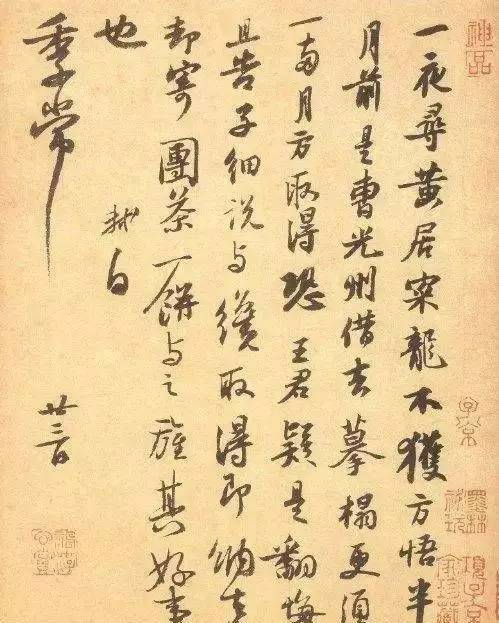 一夜尋黃居寀龍不獲方悟半
月前是曹光州借去摹搨更須
一兩月方取得恐王君疑是翻悔
且告子細說与纔取得即納去
却寄團茶一餅与之旌其好事
也 軾白
季常 廿三日
神品
子京
墨林秘玩